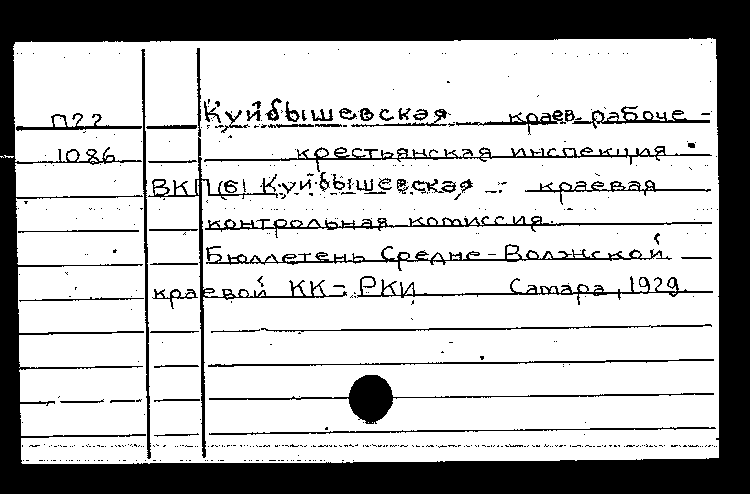 П22 Куйбышевская краев. рабоче-
1086 крестьянская инспекция.
ВКП(б) Куйбышевская - краевая
контрольная комиссия.
Бюллетень Средне-Волжской
краевой КК-РКИ. Самара, 1929.